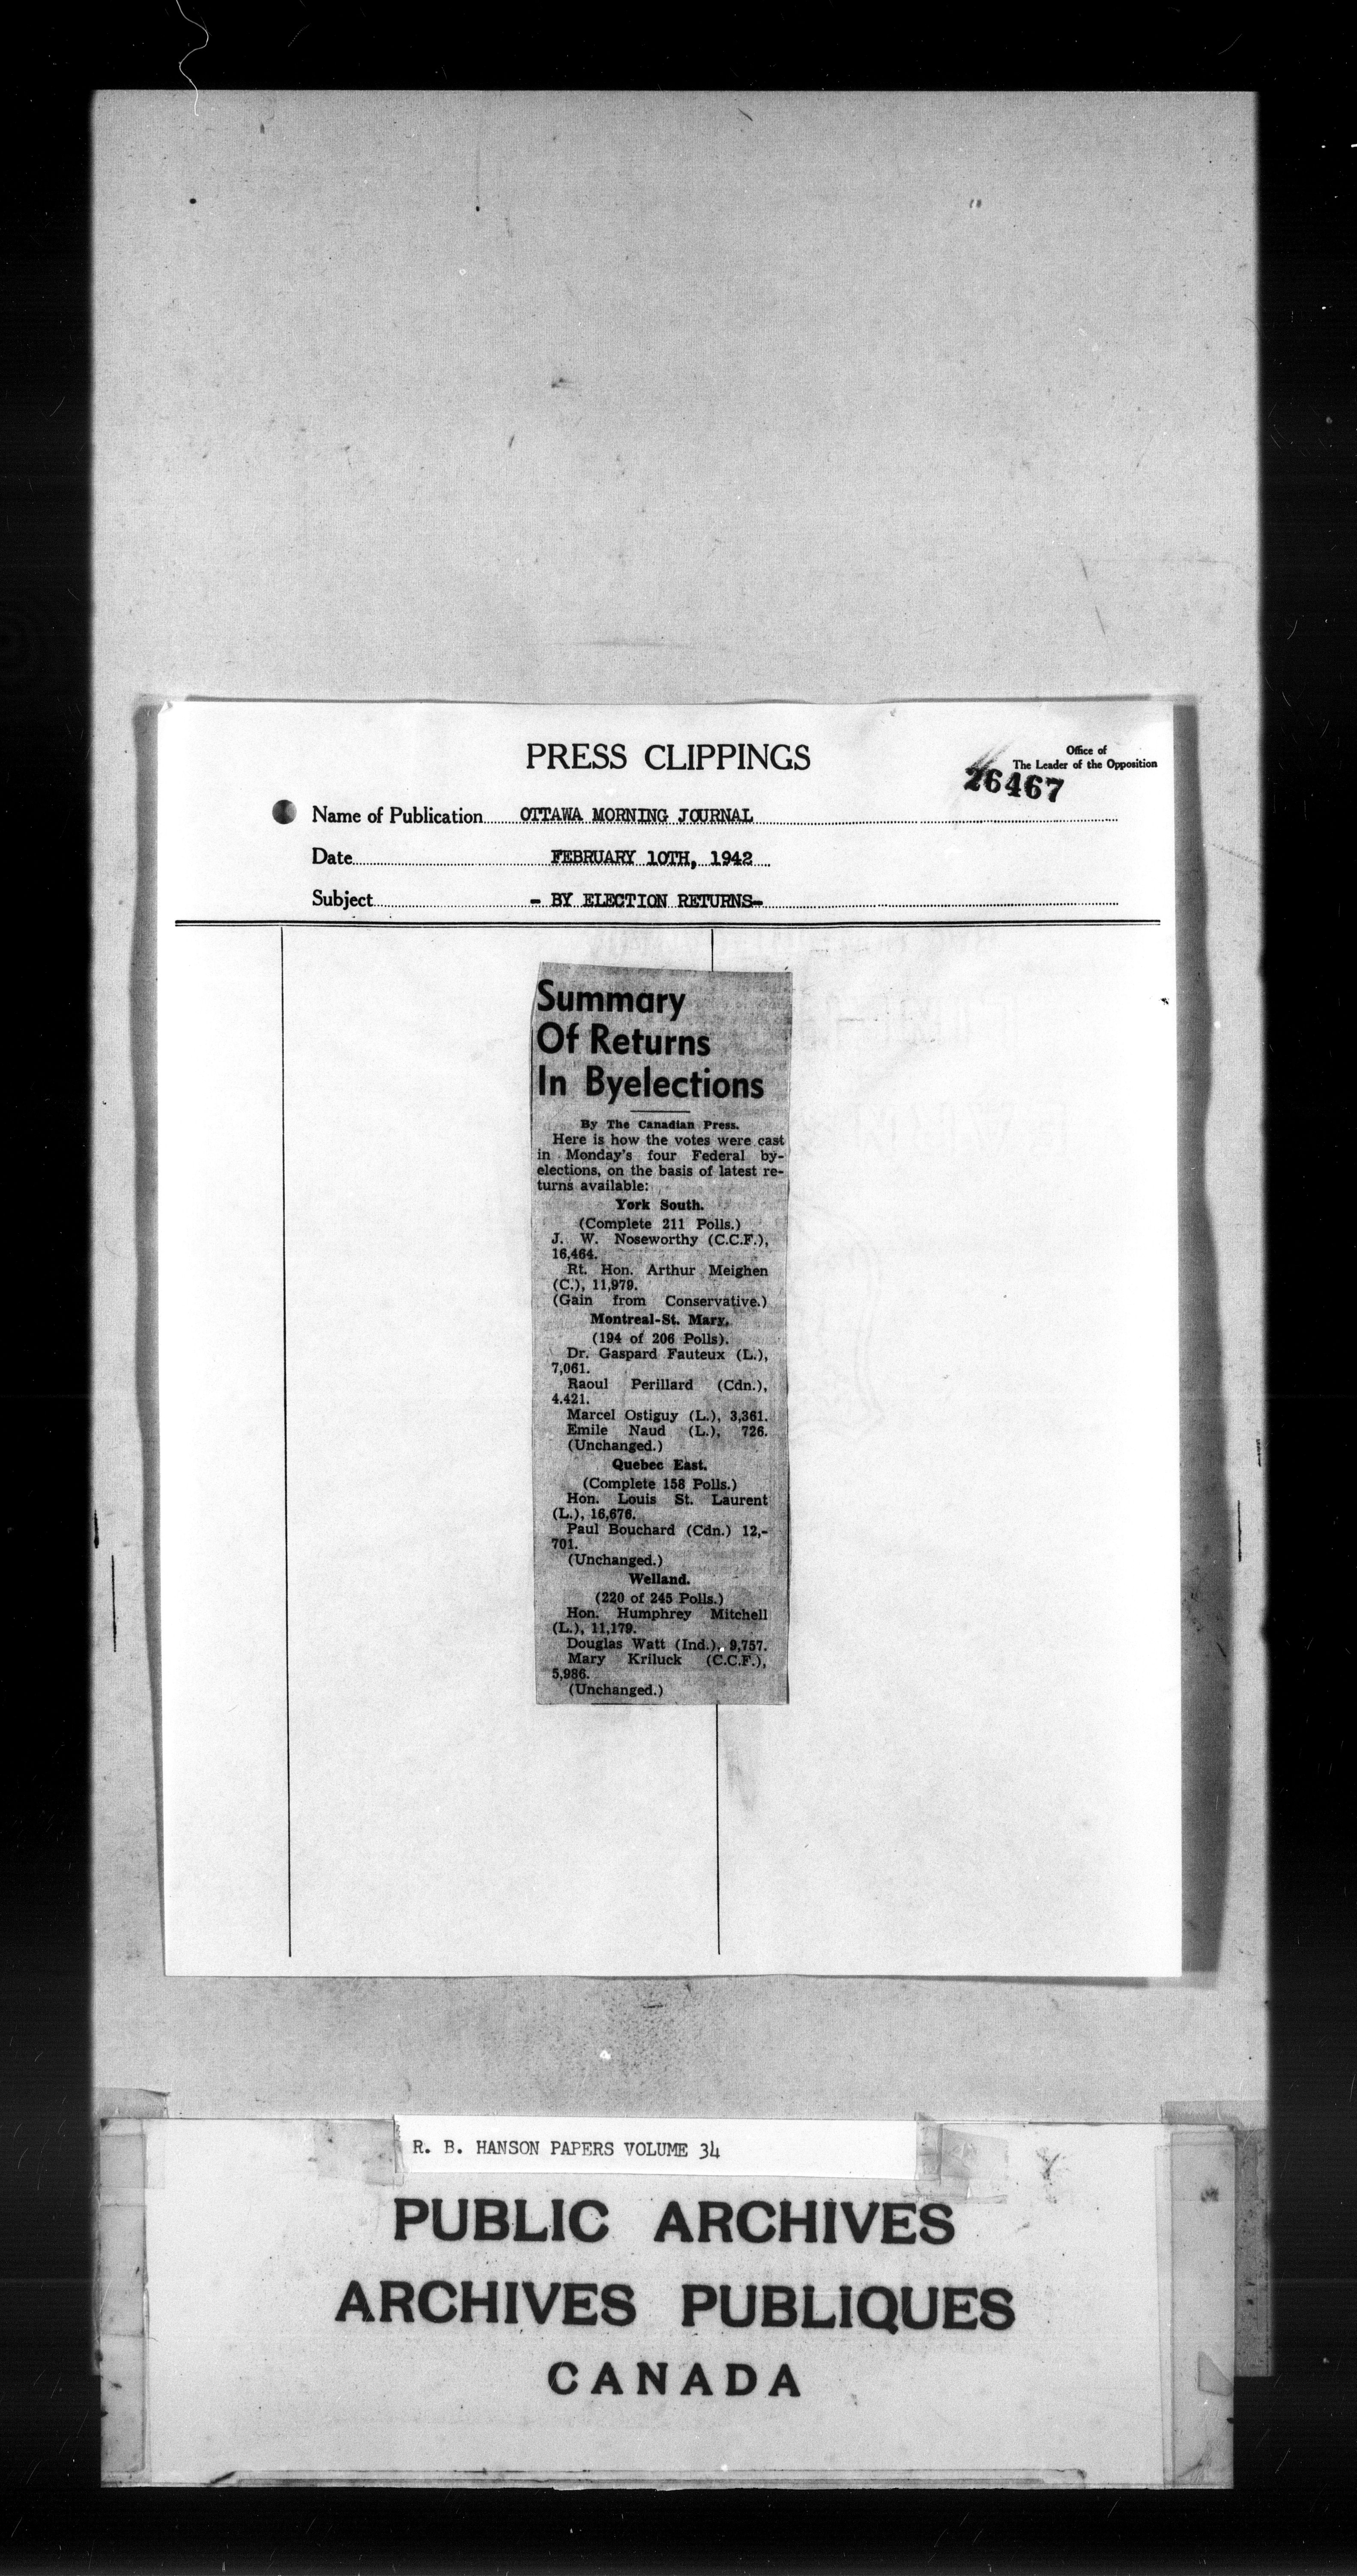 PRESS CLIPPINGS
Office of
The Leader of the Opposition
26467
Name of Publication OTTAWA MORNING JOURNAL
Date FEBRUARY 10TH, 1942
Subject - BY ELECTION RETURNS-
Summary
Of Returns
In Byelections
By The Canadian Press.
Here is how the votes were cast
in Monday's four Federal by-
elections, on the basis of latest re-
turns available:
York South.
(Complete 211 Polls.)
J. W. Noseworthy (C.C.F.),
16,464.
Rt. Hon. Arthur Meighen
(C.), 11,979.
(Gain from Conservative.)
Montreal-St. Mary.
(194 of 206 Polls).
Dr. Gaspard Fauteux (L.),
7,061.
Raoul Perillard (Cdn.),
4.421.
Marcel Ostiguy (L.), 3,361.
Emile Naud (L.), 726.
(Unchanged.)
Quebec East.
(Complete 158 Polls.)
Hon. Louis St. Laurent
(L.), 16,676.
Paul Bouchard (Cdn.) 12,-
701.
(Unchanged.)
Welland.
(220 of 245 Polls.)
Hon. Humphrey Mitchell
(L.), 11,179.
Douglas Watt (Ind.), 9,757.
Mary Kriluck (C.C.F.),
5,986.
(Unchanged.)
R. B. HANSON PAPERS VOLUME 34
PUBLIC ARCHIVES
ARCHIVES PUBLIQUES
CANADA